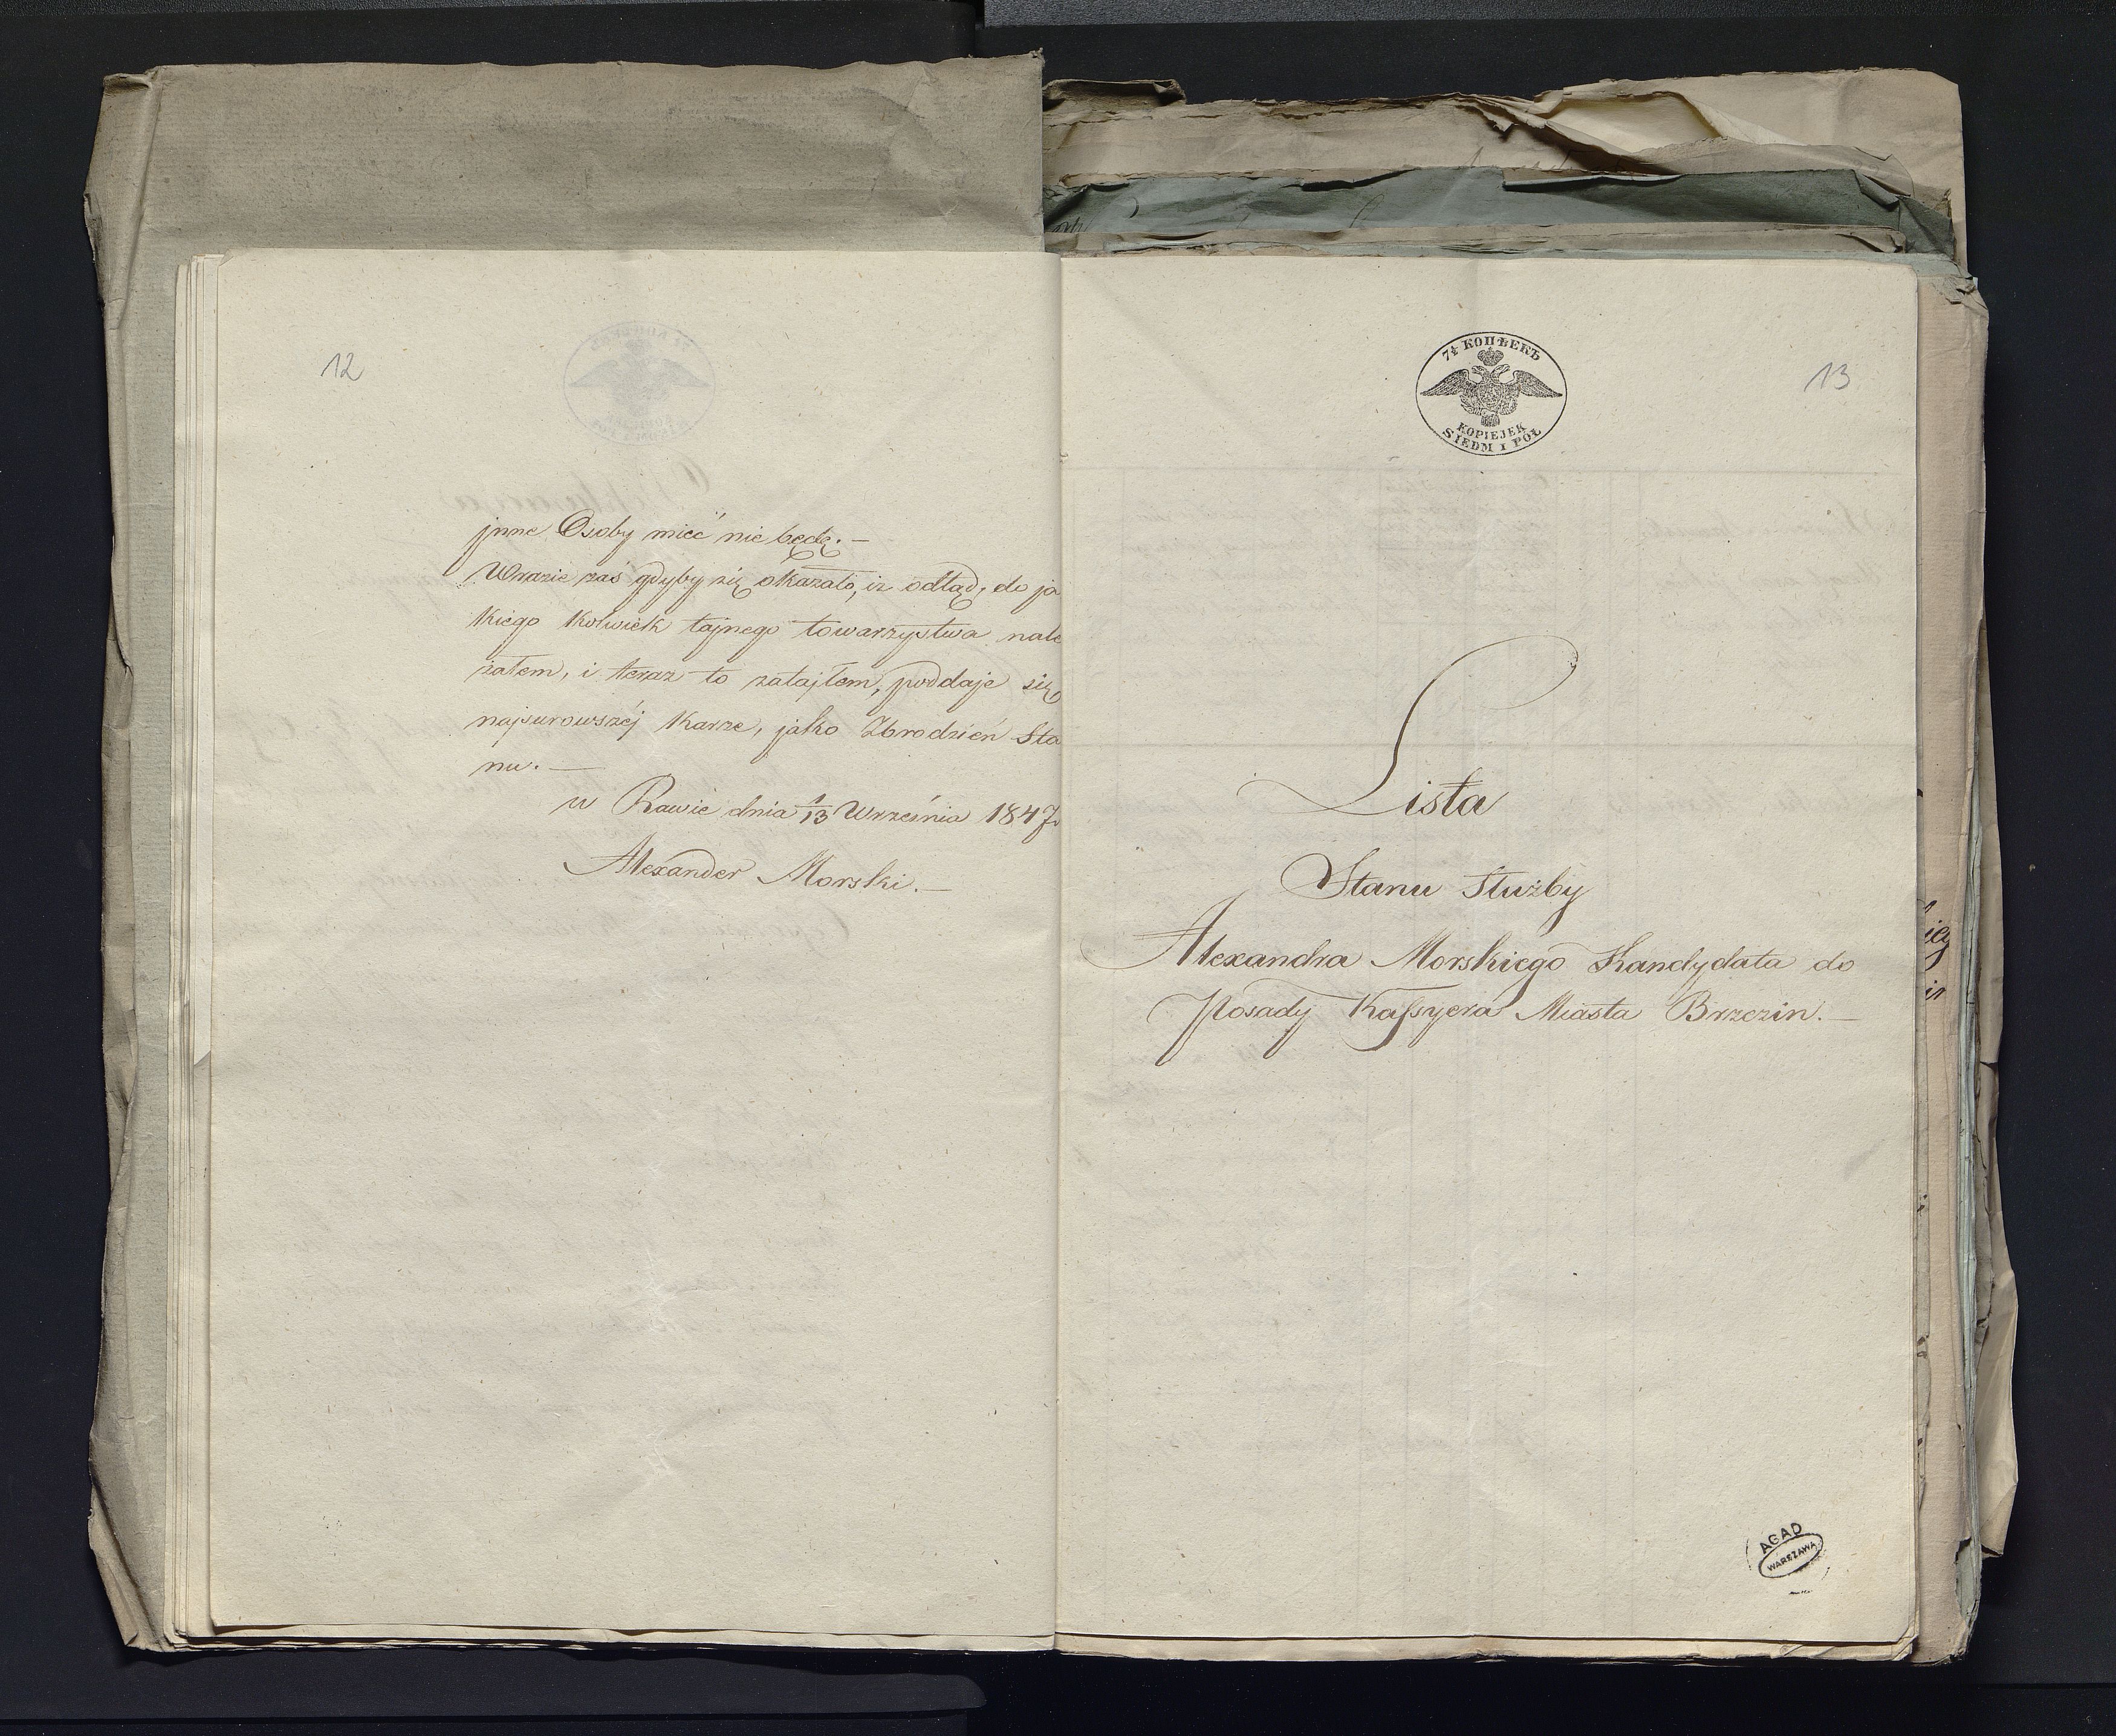 12
jnne Osoby mieć nie będę. —
W razie zaś gdyby się okazało, iż odtąd, do ja
kiego kolwiek tajnego towarzystwa nale
żałem, i teraz to zataiłem, poddaje się
najsurowszéj karze, jako Zbrodzień Sta
nu. —
w Rawie dnia 1/13 Września 1847
Alexander Morski. —
13
7½ КОПѢЕКЪ
KOPIEJEK
SIEDM I PÓŁ
Lista
Stanu Służby
Alexandra Morskiego Kandydata do
Posady Kassyera Miasta Brzezin. —
AGAD
WARSZAWA